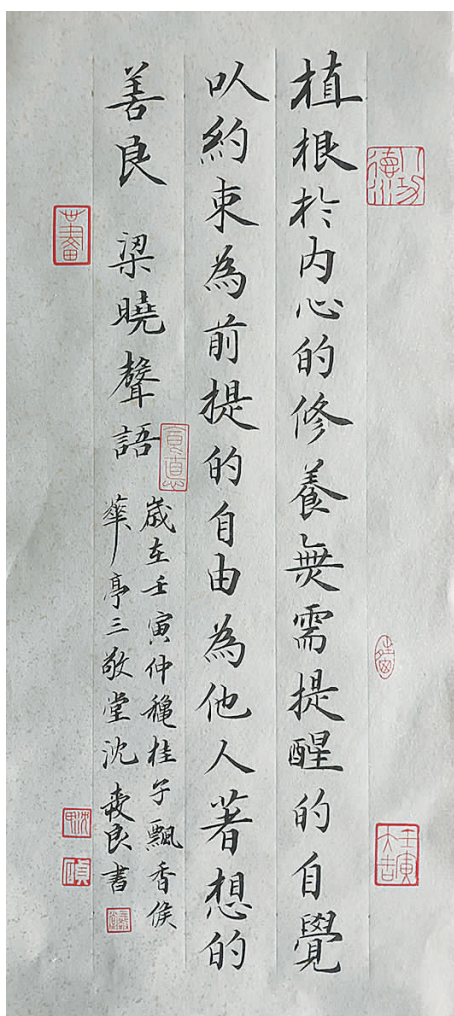 植根於內心的修養無需提醒的自覺
以約束為前提的自由為他人著想的
善良 梁曉聲語
歲在壬寅仲穐桂子飄香候
華亭三敬堂沈良書
壬寅大吉